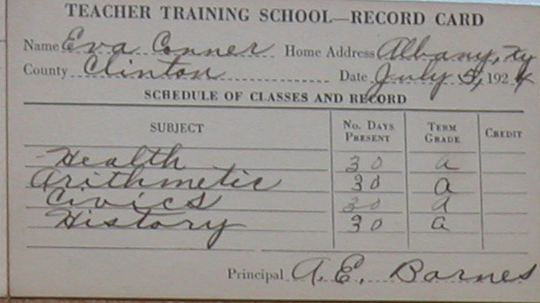 TEACHER TRAINING SCHOOL—RECORD CARD
Name Eva Conner Home Address Albany, Ky
County Clinton Date July 5, 1924
SCHEDULE OF CLASSES AND RECORD
SUBJECT No. DAYS PRESENT TERM GRADE CREDIT
Health 30 a
Arithmetic 30 a
Civics 30 a
History 30 a
Principal A. E. Barnes